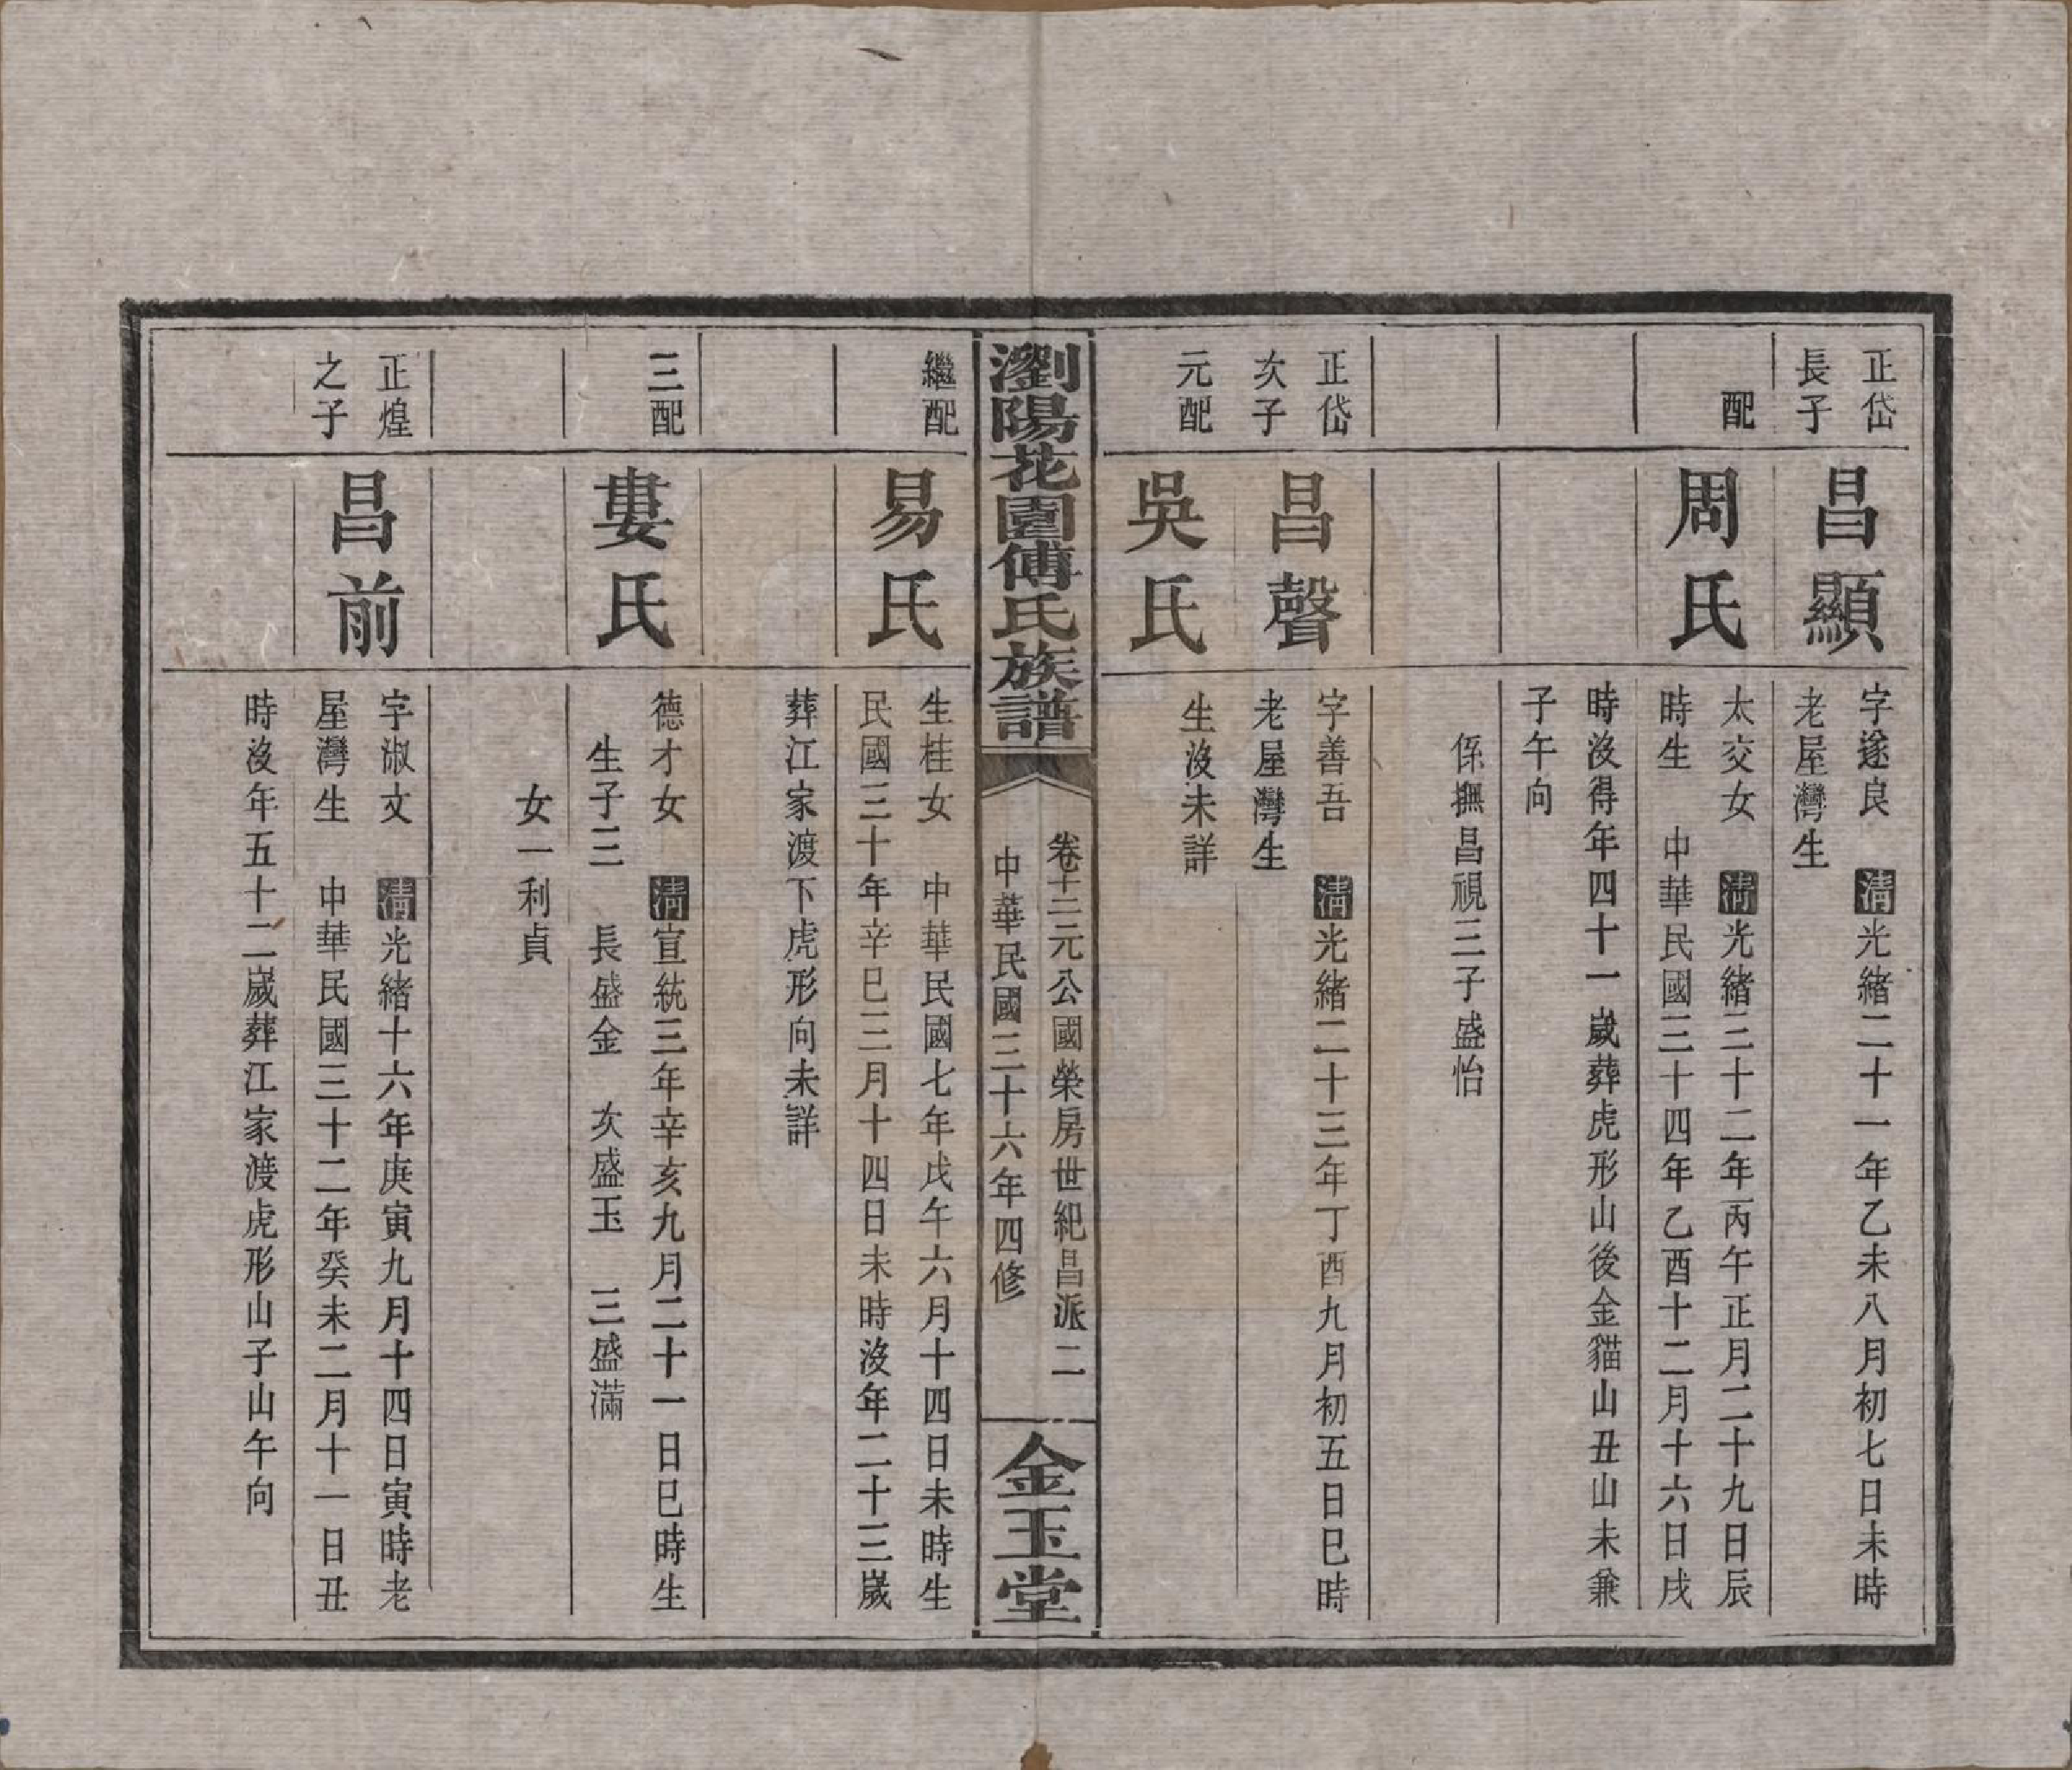 正岱
長子
昌顯
字遂良　清光緒二十一年乙未八月初七日未時
老屋灣生
配
周氏
太交女　清光緒三十二年丙午正月二十九日辰
時生　中華民國三十四年乙酉十二月十六日戌
時沒得年四十一歲葬虎形山後金貓山丑山未兼
子午向
係撫昌視三子盛怡
正岱
次子
昌聲
字善吾　清光緒二十三年丁酉九月初五日巳時
老屋灣生
元配
吳氏
生沒未詳
瀏陽花園傅氏族譜
卷十二元公國榮房世紀昌派　二
中華民國三十六年四修
金玉堂
繼配
易氏
生桂女　中華民國七年戊午六月十四日未時生
民國三十年辛巳三月十四日未時沒年二十三歲
葬江家渡下虎形向未詳
三配
婁氏
德才女　清宣統三年辛亥九月二十一日巳時生
生子三　長盛金　次盛玉　三盛滿
女一利貞
正煌
之子
昌前
字淑文　清光緒十六年庚寅九月十四日寅時老
屋灣生　中華民國三十二年癸未二月十一日丑
時沒年五十二歲葬江家渡虎形山子山午向